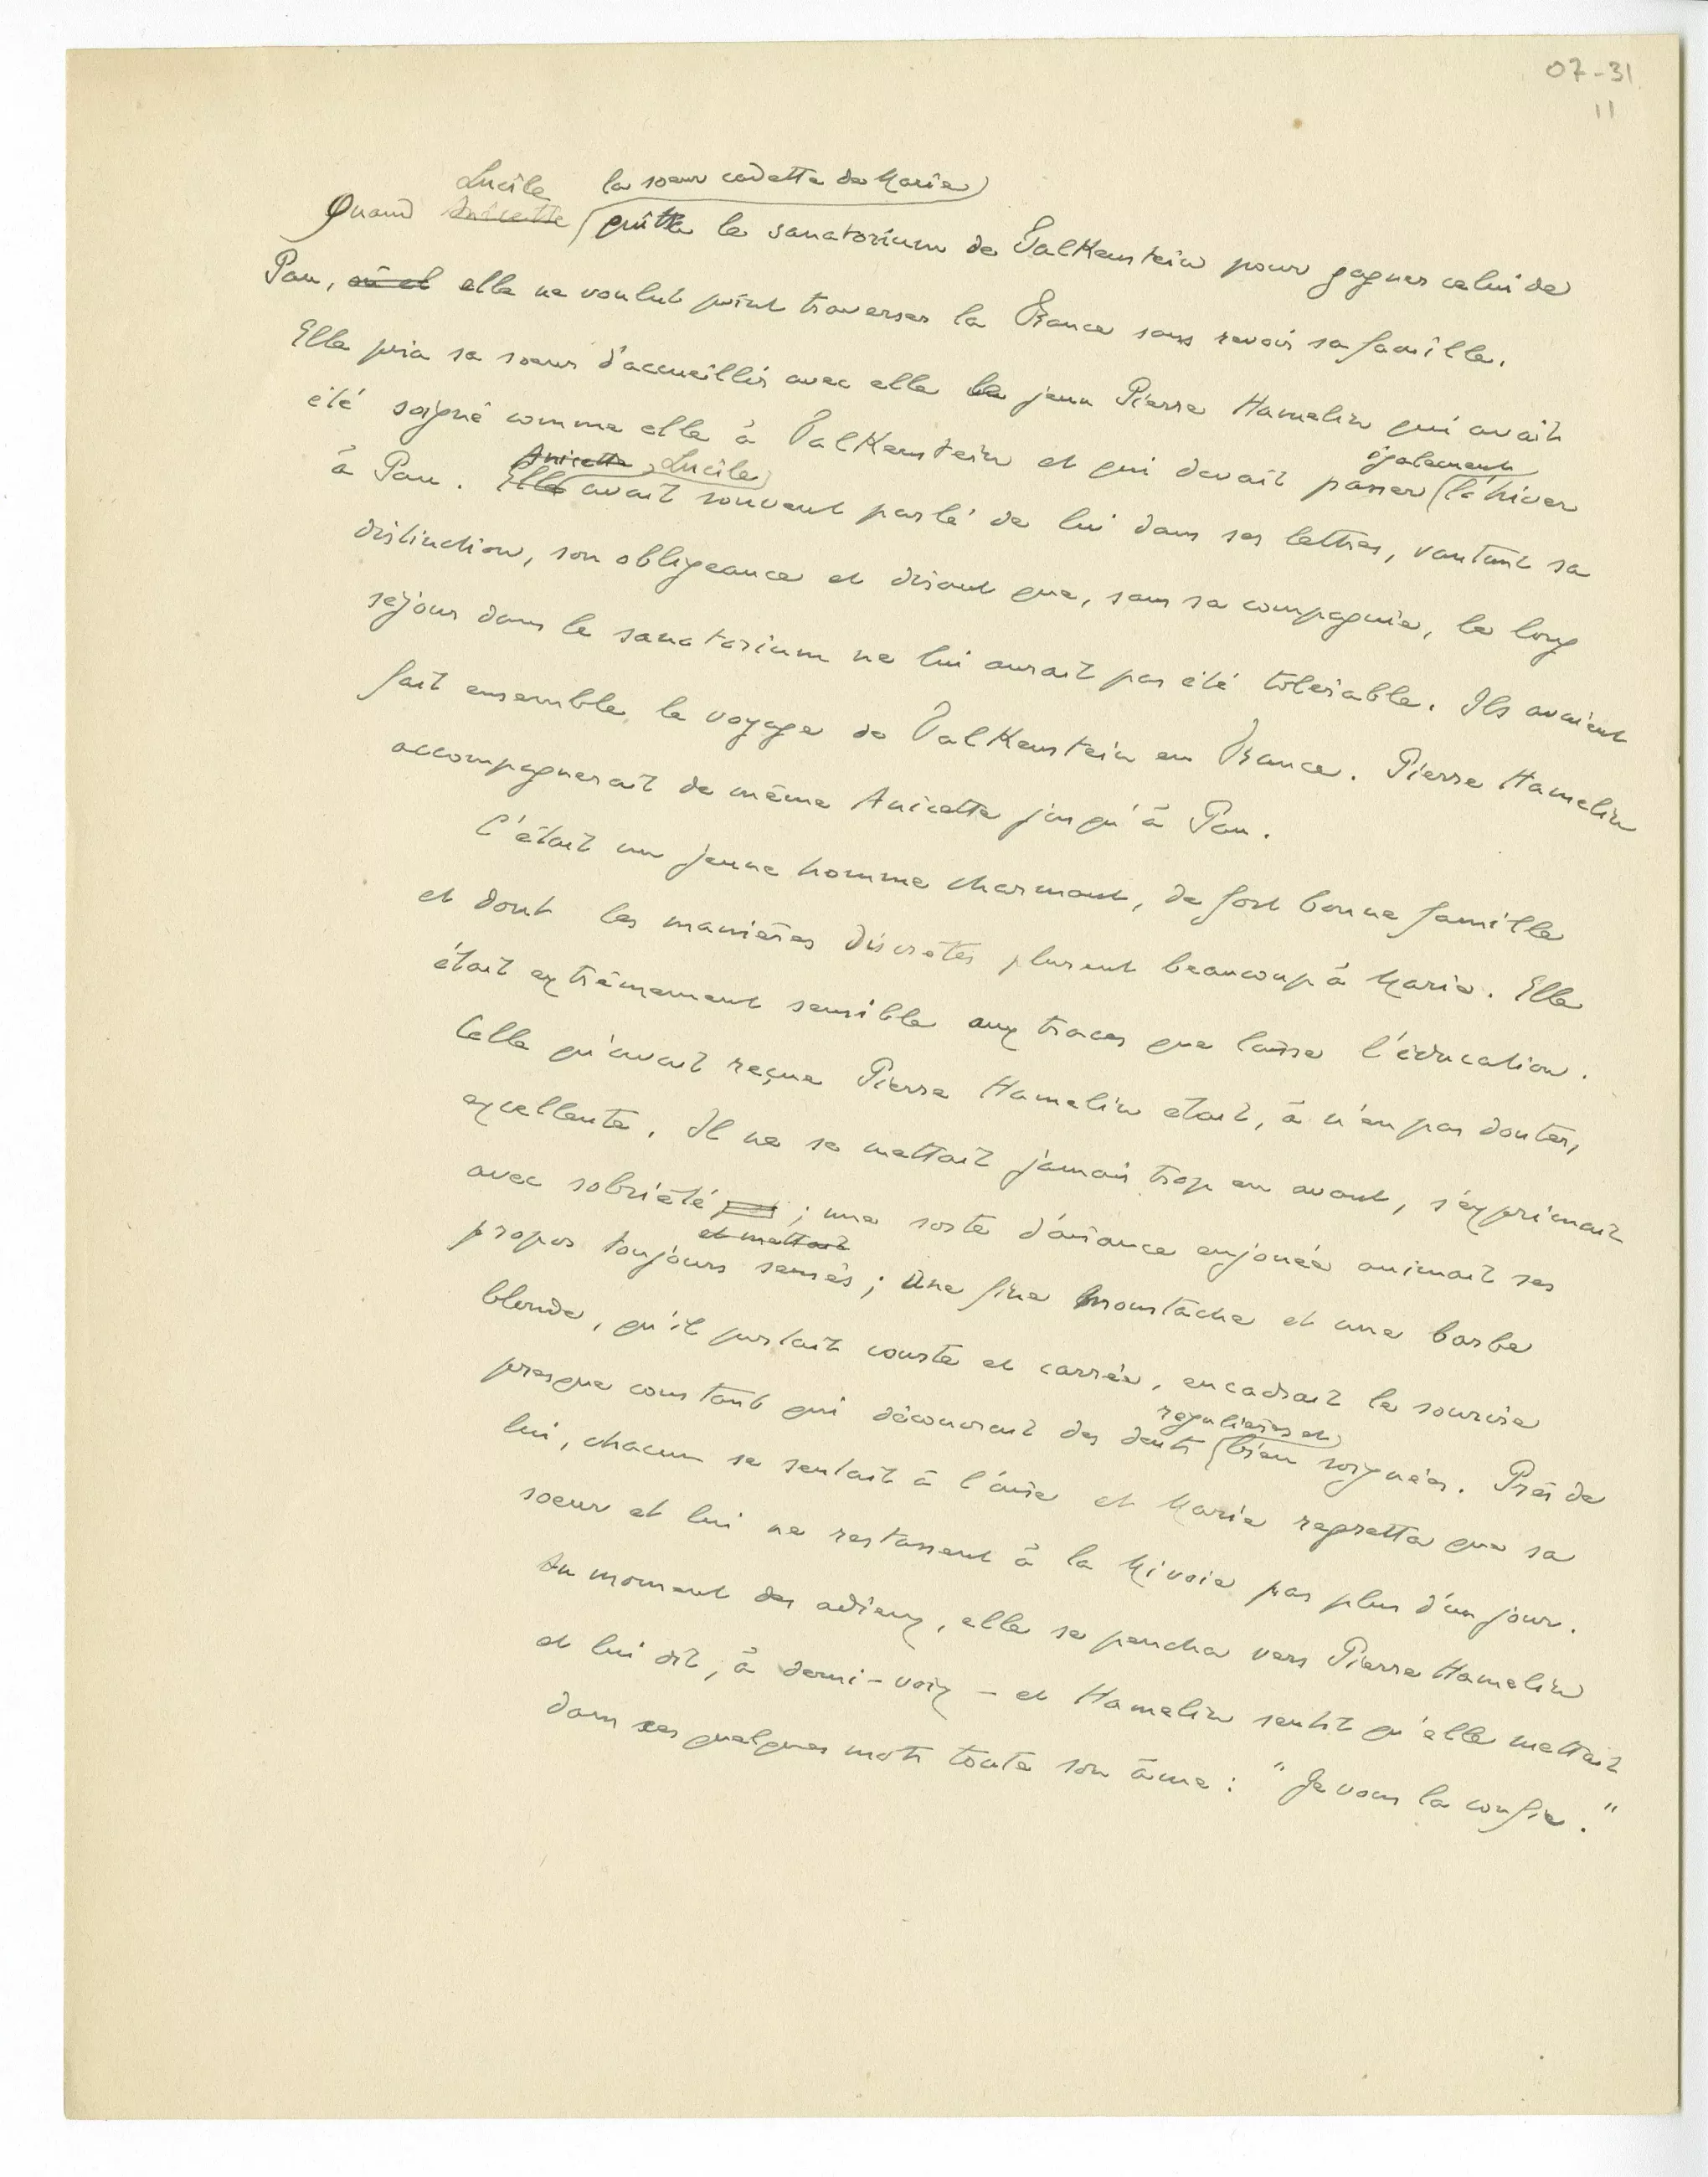 07-31
11
Lucile la soeur cadette de Marie
Quand Anicette quitta le sanatorium de Falkenstein pour gagner celui de
Pau, où el elle ne voulut point traverser la France sans revoir sa famille.
Elle pria sa soeur d'accueillir avec elle le jeune Pierre Hamelin qui avait
été soigné comme elle à Falkenstein et qui devait passer (l'hiver
également
à Pau. Elle avait souvent parlé de lui dans ses lettres, vantant sa
Anicette Lucile
distinction, son obligeance et disant que, sans sa compagnie, le long
séjour dans le sanatorium ne lui aurait pas été tolérable. Ils avaient
fait ensemble le voyage de Falkenstein en France. Pierre Hamelin
accompagnerait de même Anicette jusqu'à Pau.
C'était un jeune homme charmant, de fort bonne famille
et dont les manières discrètes plurent beaucoup à Marie. Elle
était extrêmement sensible aux traces que laisse l'éducation.
Celle qu'avait reçue Pierre Hamelin était, à n'en pas douter,
excellente. Il ne se mettait jamais trop en avant, s'exprimait
avec sobriété ; une sorte d'aisance enjouée animait ses
et mettait
propos toujours sensés ; Une fine moustache et une barbe
blonde, qu'il portait courte et carrée, encadrait le sourire
presque constant qui découvrait des dents (bien soignées. Près de
regulières et
lui, chacun se sentait à l'aise et Marie regretta que sa
soeur et lui ne restassent à la Mivoie pas plus d'un jour.
Au moment des adieux, elle se pencha vers Pierre Hamelin
et lui dit, à demi-voix – et Hamelin sentit qu'elle mettait
dans ces quelques mots toute son âme : "Je vous la confie."